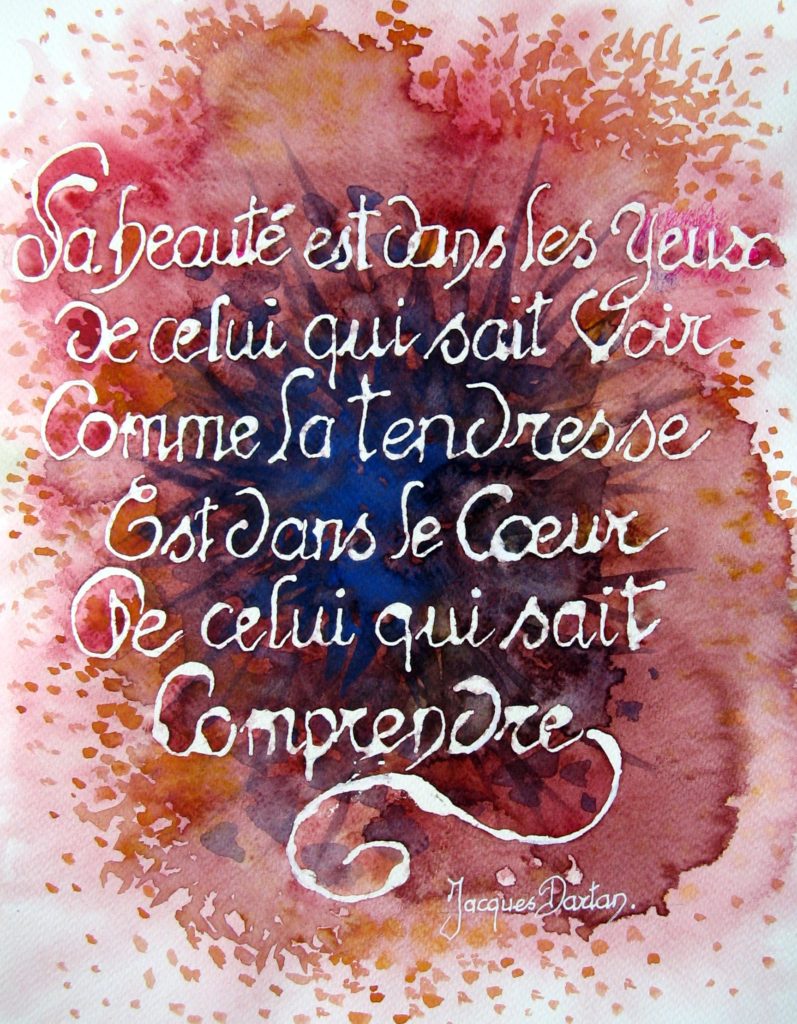 La beauté est dans les Yeux
De celui qui sait Voir
Comme la tendresse
Est dans le Cœur
De celui qui sait
Comprendre
Jacques Dartan.